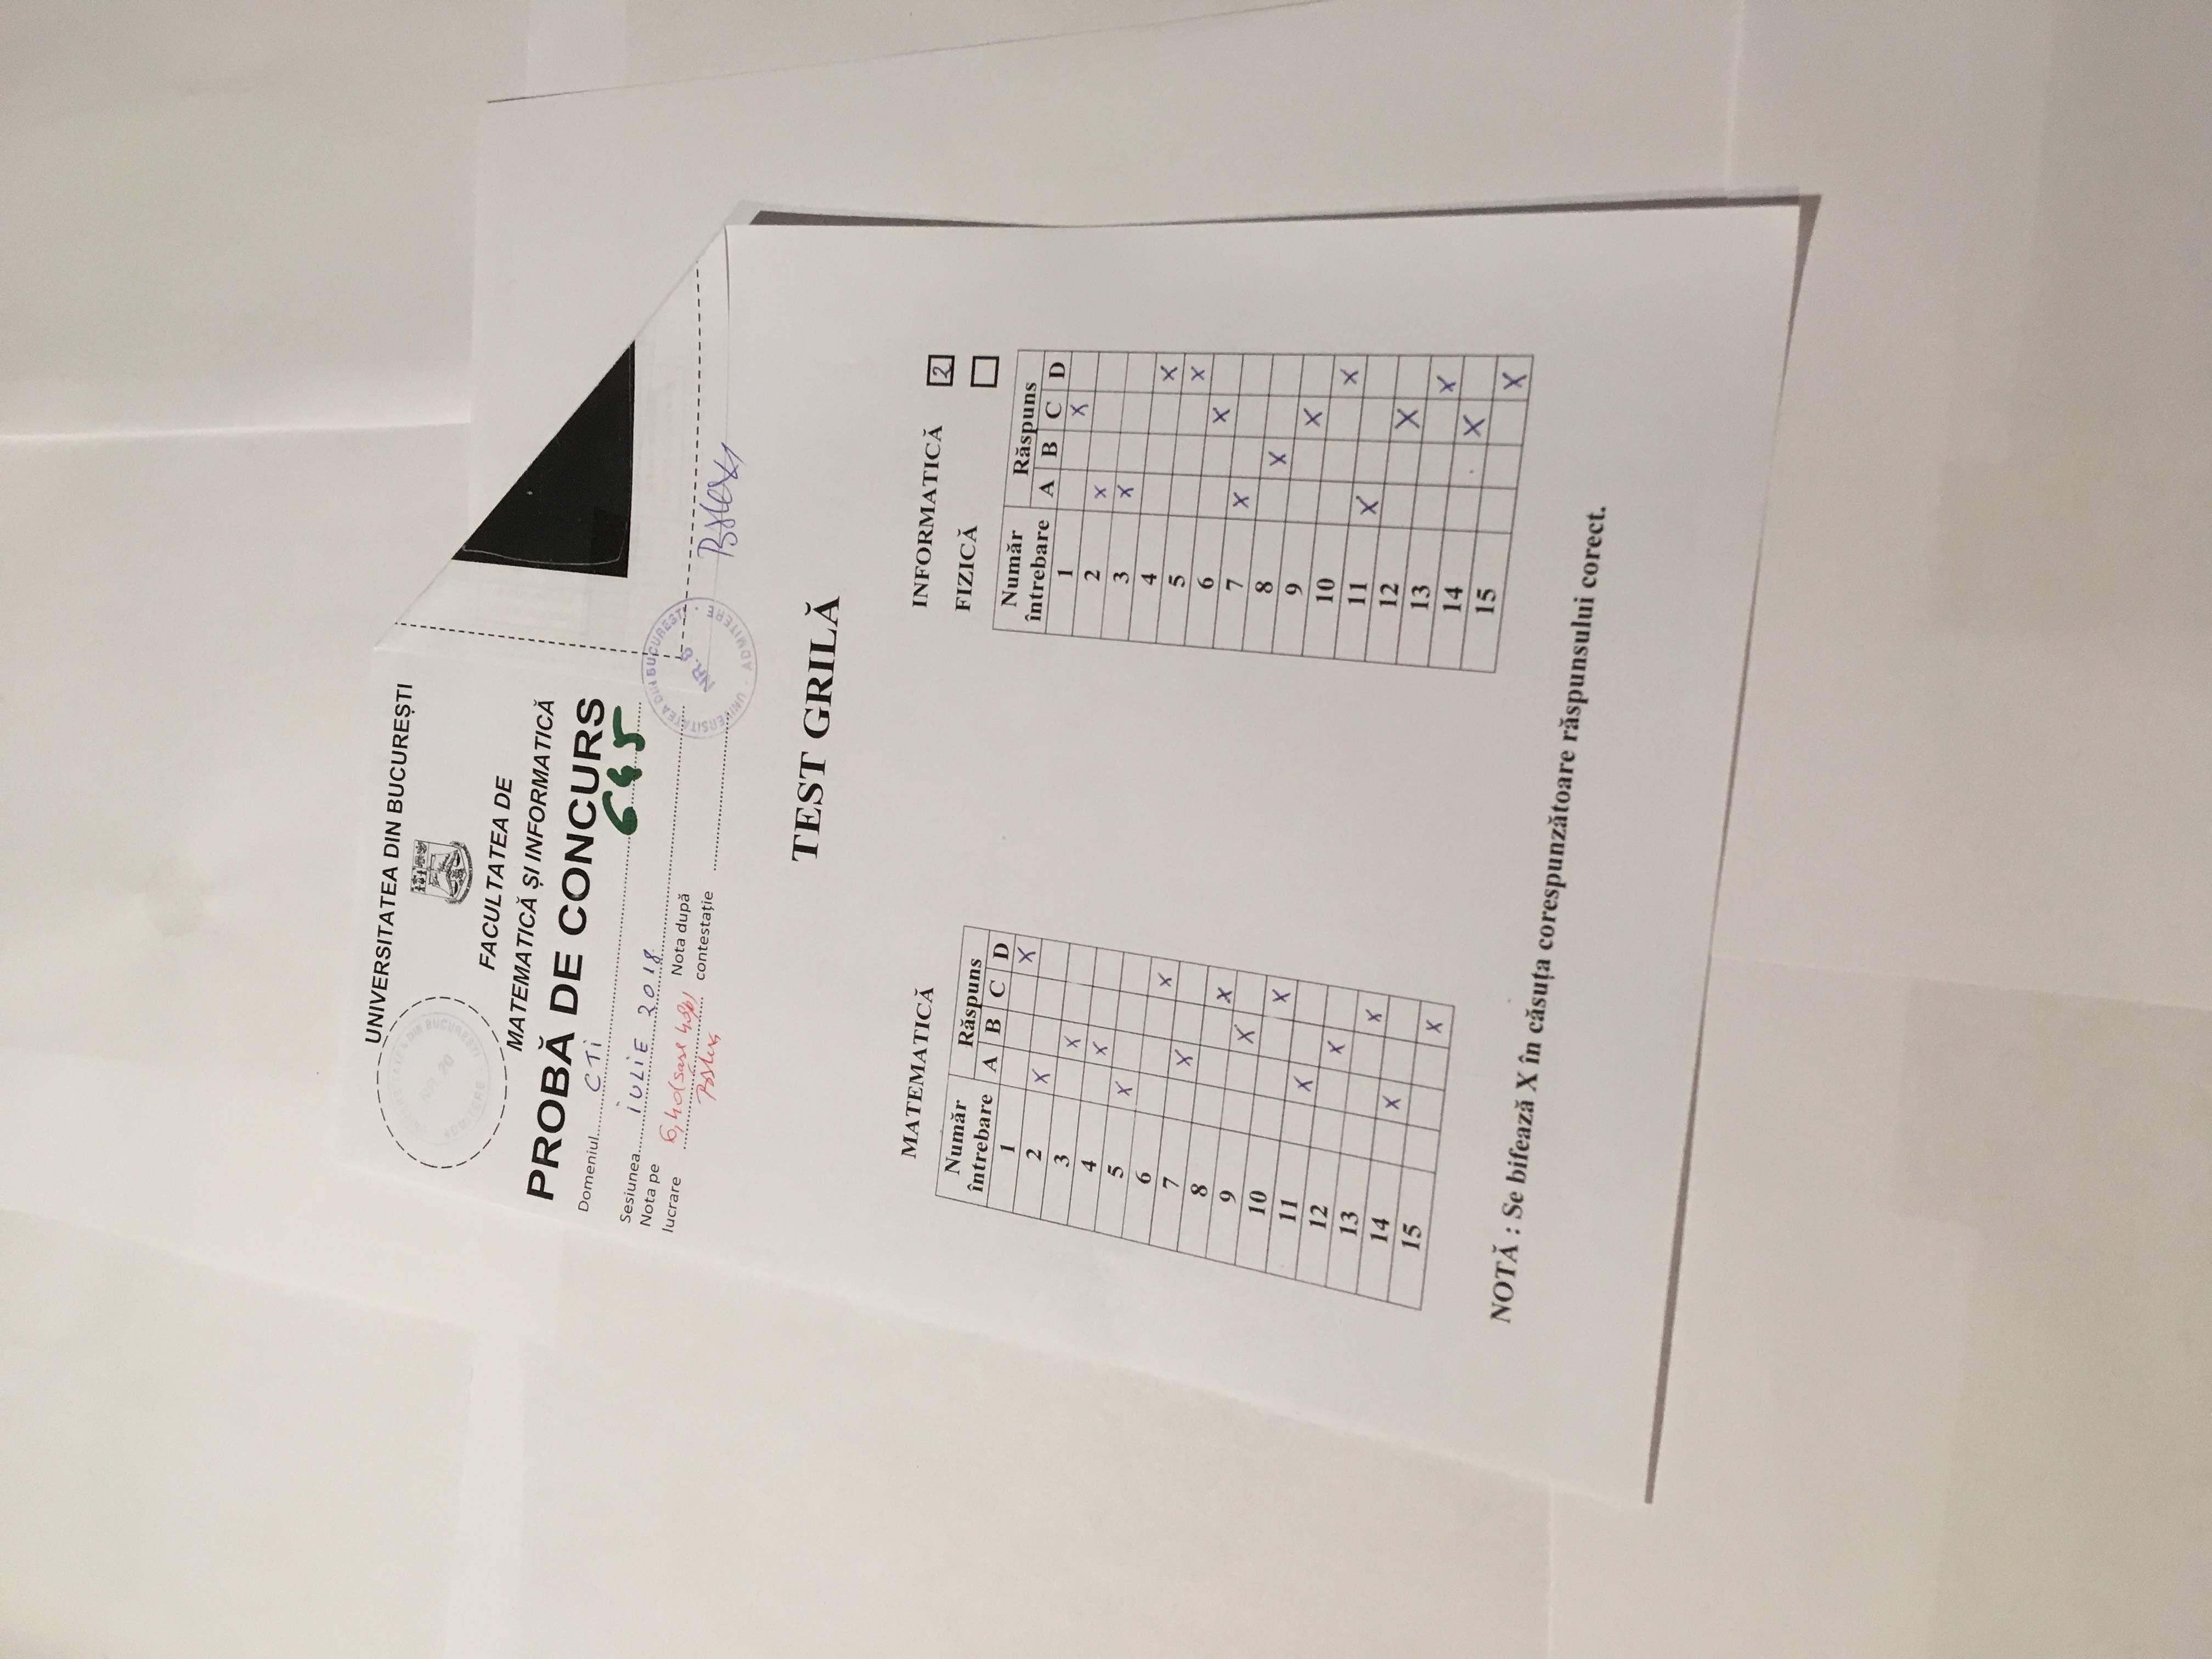 UNIVERSITATEA DIN BUCUREȘTI
FACULTATEA DE
MATEMATICĂ ȘI INFORMATICĂ
PROBĂ DE CONCURS
Domeniul CTi
645
Sesiunea iULiE 2018
Nota pe lucrare 6,40 (șase 40p)
Nota după contestație
UNIVERSITATEA DIN BUCUREȘTI · ADMITERE ·
NR. 8
TEST GRILĂ
MATEMATICĂ
Număr întrebare Răspuns
A B C D
1 X
2 X
3 X
4 X
5 X
6 X
7 X
8 X
9 X
10 X
11 X
12 X
13 X
14 X
15 X
INFORMATICĂ 2
FIZICĂ
Număr întrebare Răspuns
A B C D
1 X
2 X
3 X
4 X
5 X
6 X
7 X
8 X
9 X
10 X
11 X
12 X
13 X
14 X
15 X
NOTĂ : Se bifează X în căsuța corespunzătoare răspunsului corect.